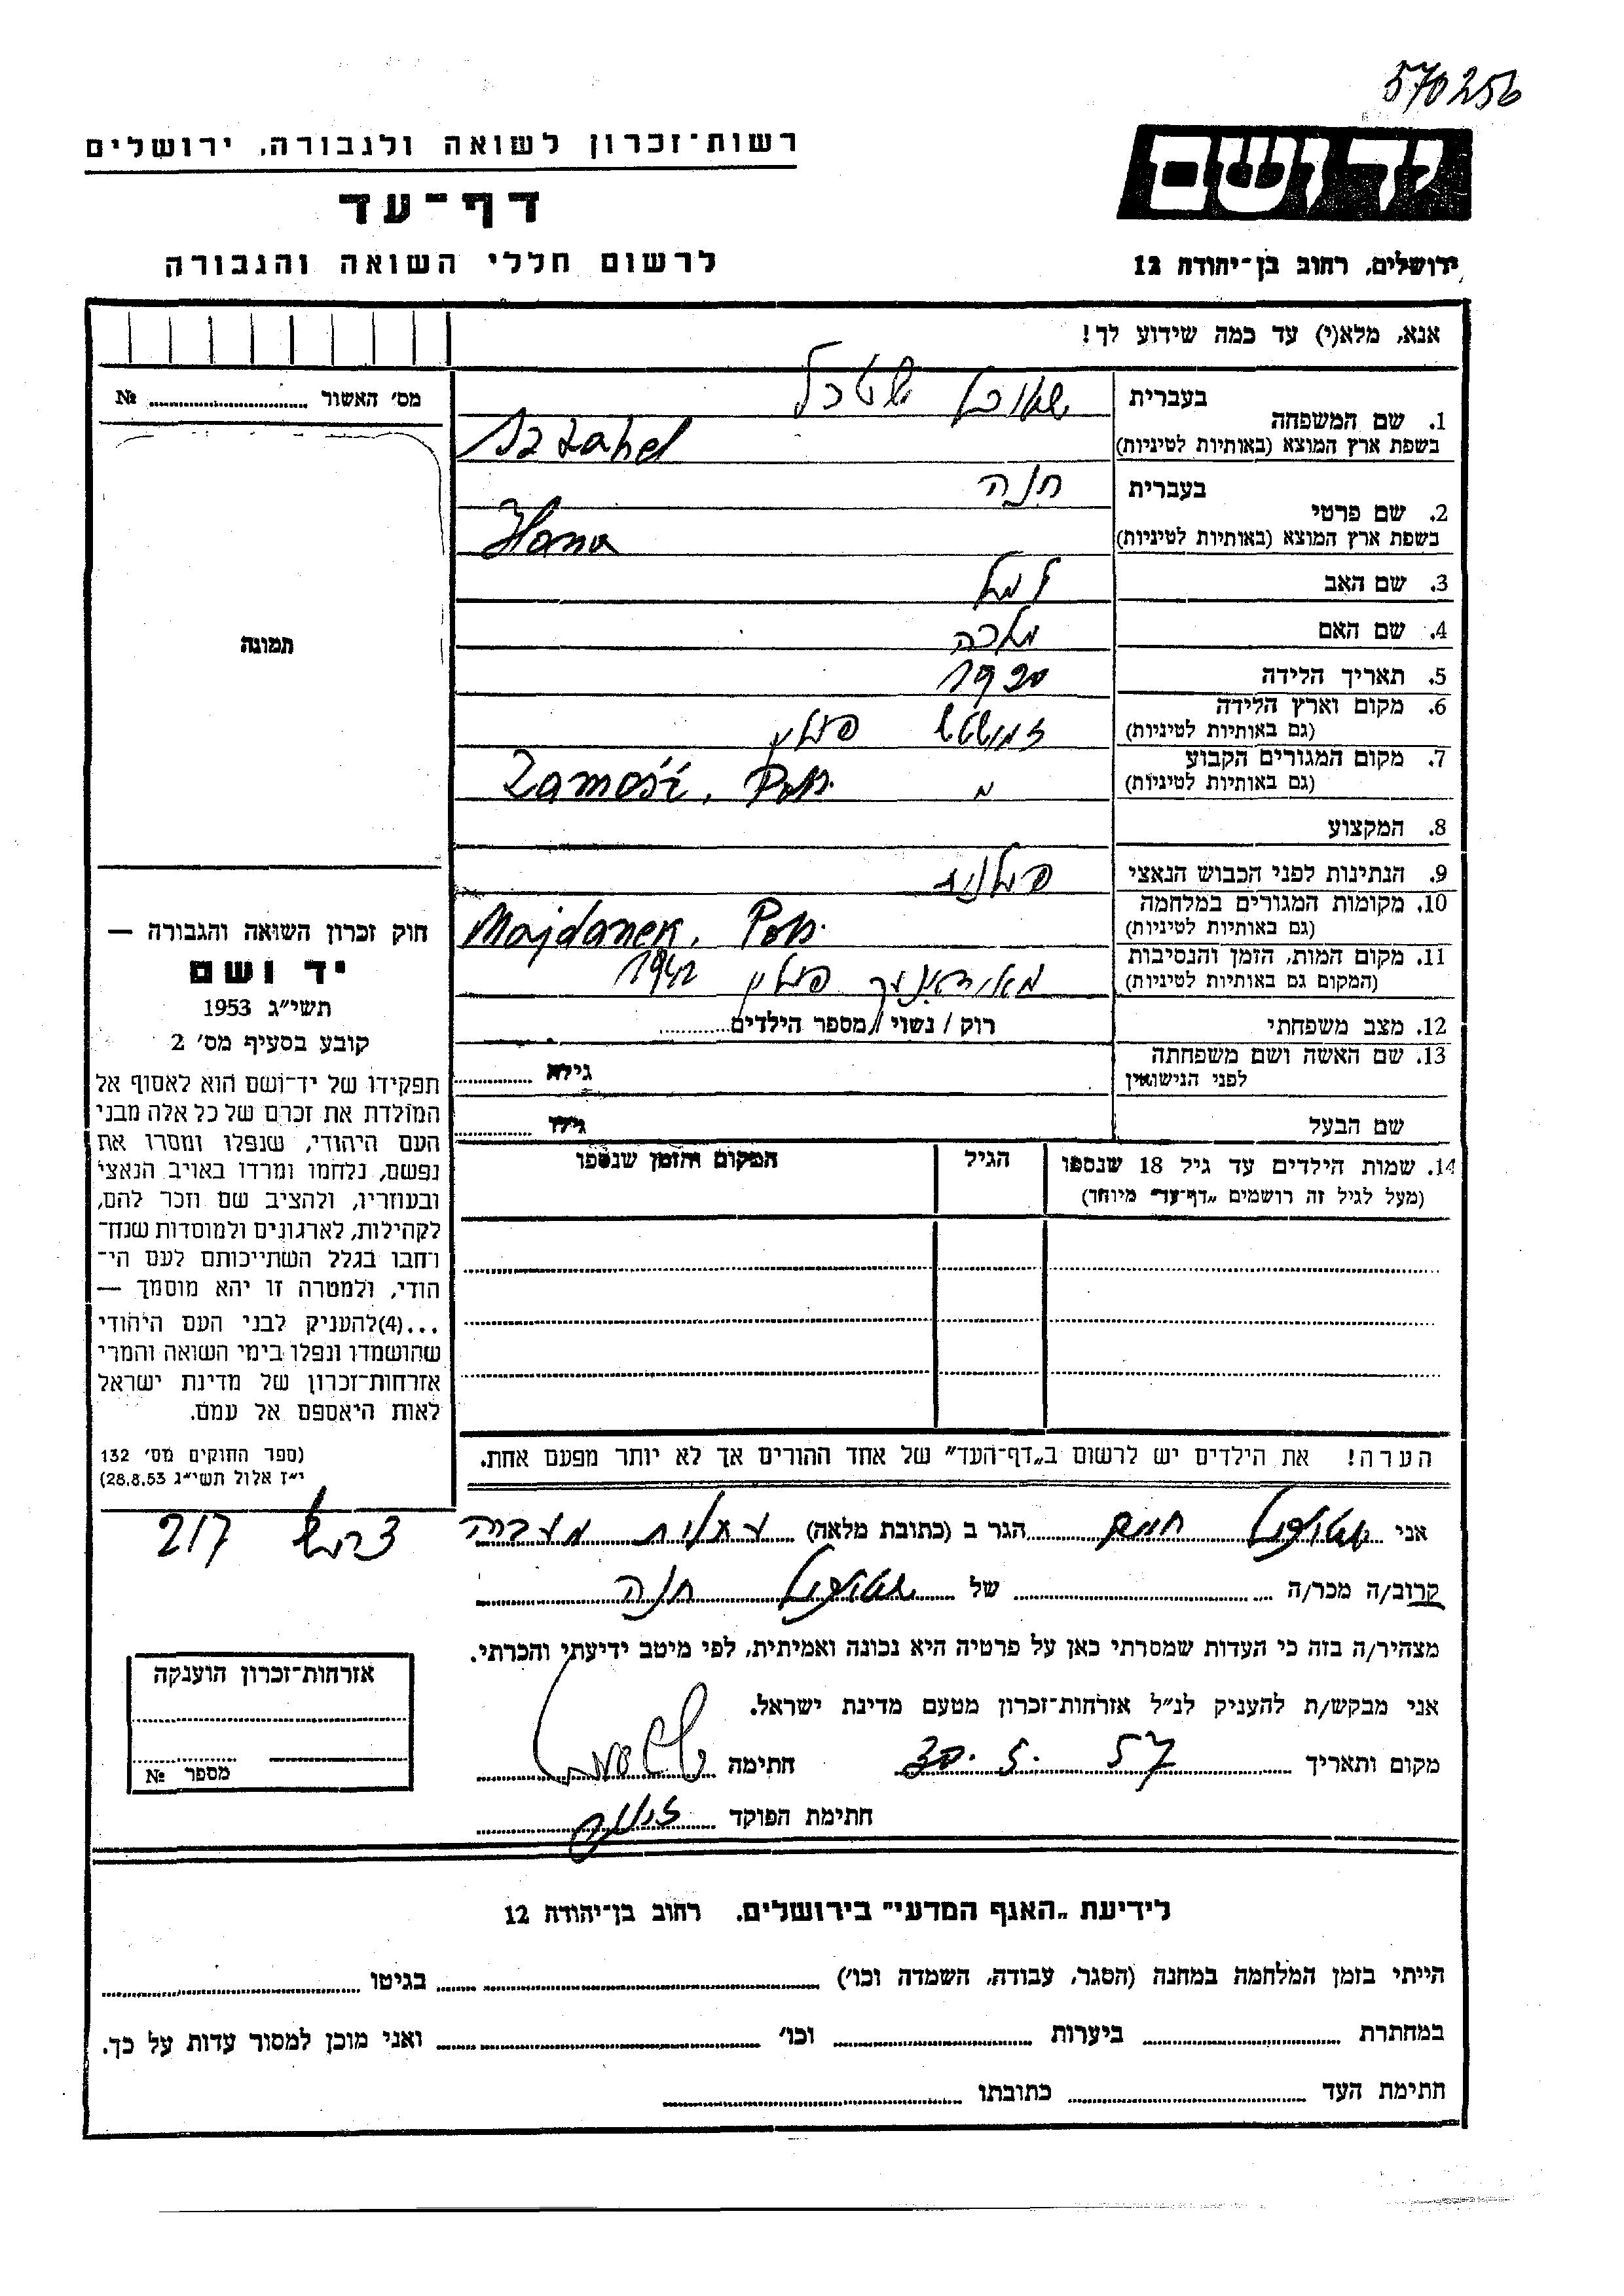 570256
ידושם
רשות־זכרון לשואה ולגבורה, ירושלים
דף־עד
ירושלים, רחוב בן־יהודה 12
לרשום חללי השואה והגבורה
אנא, מלא(י) עד כמה שידוע לך!
מס' האשור № ........
1. שם המשפחה
בעברית
בשפת ארץ המוצא (באותיות לטיניות)
2. שם פרטי
בעברית חנה
בשפת ארץ המוצא (באותיות לטיניות) Hana
3. שם האב
4. שם האם מלכה
תמונה
5. תאריך הלידה 1920
6. מקום וארץ הלידה
(גם באותיות לטיניות) פולין
7. מקום המגורים הקבוע
(גם באותיות לטיניות) Zamość, Pol.
8. המקצוע
9. הנתינות לפני הכבוש הנאצי פולנית
10. מקומות המגורים במלחמה
(גם באותיות לטיניות) Majdanek, Pol.
11. מקום המות, הזמן והנסיבות
(המקום גם באותיות לטיניות) פולין 1942
12. מצב משפחתי רוק / נשוי / מספר הילדים........
13. שם האשה ושם משפחתה
לפני הנישואין גילה ........
שם הבעל גילו ........
14. שמות הילדים עד גיל 18 שנספו
(מעל לגיל זה רושמים „דף־עד" מיוחד)
הגיל
המקום והזמן שנספו
חוק זכרון השואה והגבורה —
יד ושם
תשי״ג 1953
קובע בסעיף מס' 2
תפקידו של יד־ושם הוא לאסוף אל
המולדת את זכרם של כל אלה מבני
העם היהודי, שנפלו ומסרו את
נפשם, נלחמו ומרדו באויב הנאצי
ובעוזריו, ולהציב שם וזכר להם,
לקהילות, לארגונים ולמוסדות שנח־
רחבו בגלל השתייכותם לעם הי־
הודי, ולמטרה זו יהא מוסמך —
...(4)להעניק לבני העם היהודי
שהושמדו ונפלו בימי השואה והמרי
אזרחות־זכרון של מדינת ישראל
לאות היאספם אל עמם.
(ספר החוקים מס' 132
י״ז אלול תשי״ג 28.8.53)
הערה! את הילדים יש לרשום ב„דף־העד" של אחד ההורים אך לא יותר מפעם אחת.
אני חיים הגר ב (כתובת מלאה) עתלית מעברה צריף 217
קרוב/ה מכר/ה ........ של חנה
מצהיר/ה בזה כי העדות שמסרתי כאן על פרטיה היא נכונה ואמיתית, לפי מיטב ידיעתי והכרתי.
אני מבקש/ת להעניק לנ״ל אזרחות־זכרון מטעם מדינת ישראל.
מקום ותאריך 30.5.57 חתימה
חתימת הפוקד
אזרחות־זכרון הוענקה
מספר №
לידיעת „האגף המדעי" בירושלים, רחוב בן־יהודה 12
הייתי בזמן המלחמה במחנה (הסגר, עבודה, השמדה וכו') ........ בגיטו ........
במחתרת ........ ביערות ........ וכו' ........ ואני מוכן למסור עדות על כך.
חתימת העד ........ כתובתו ........